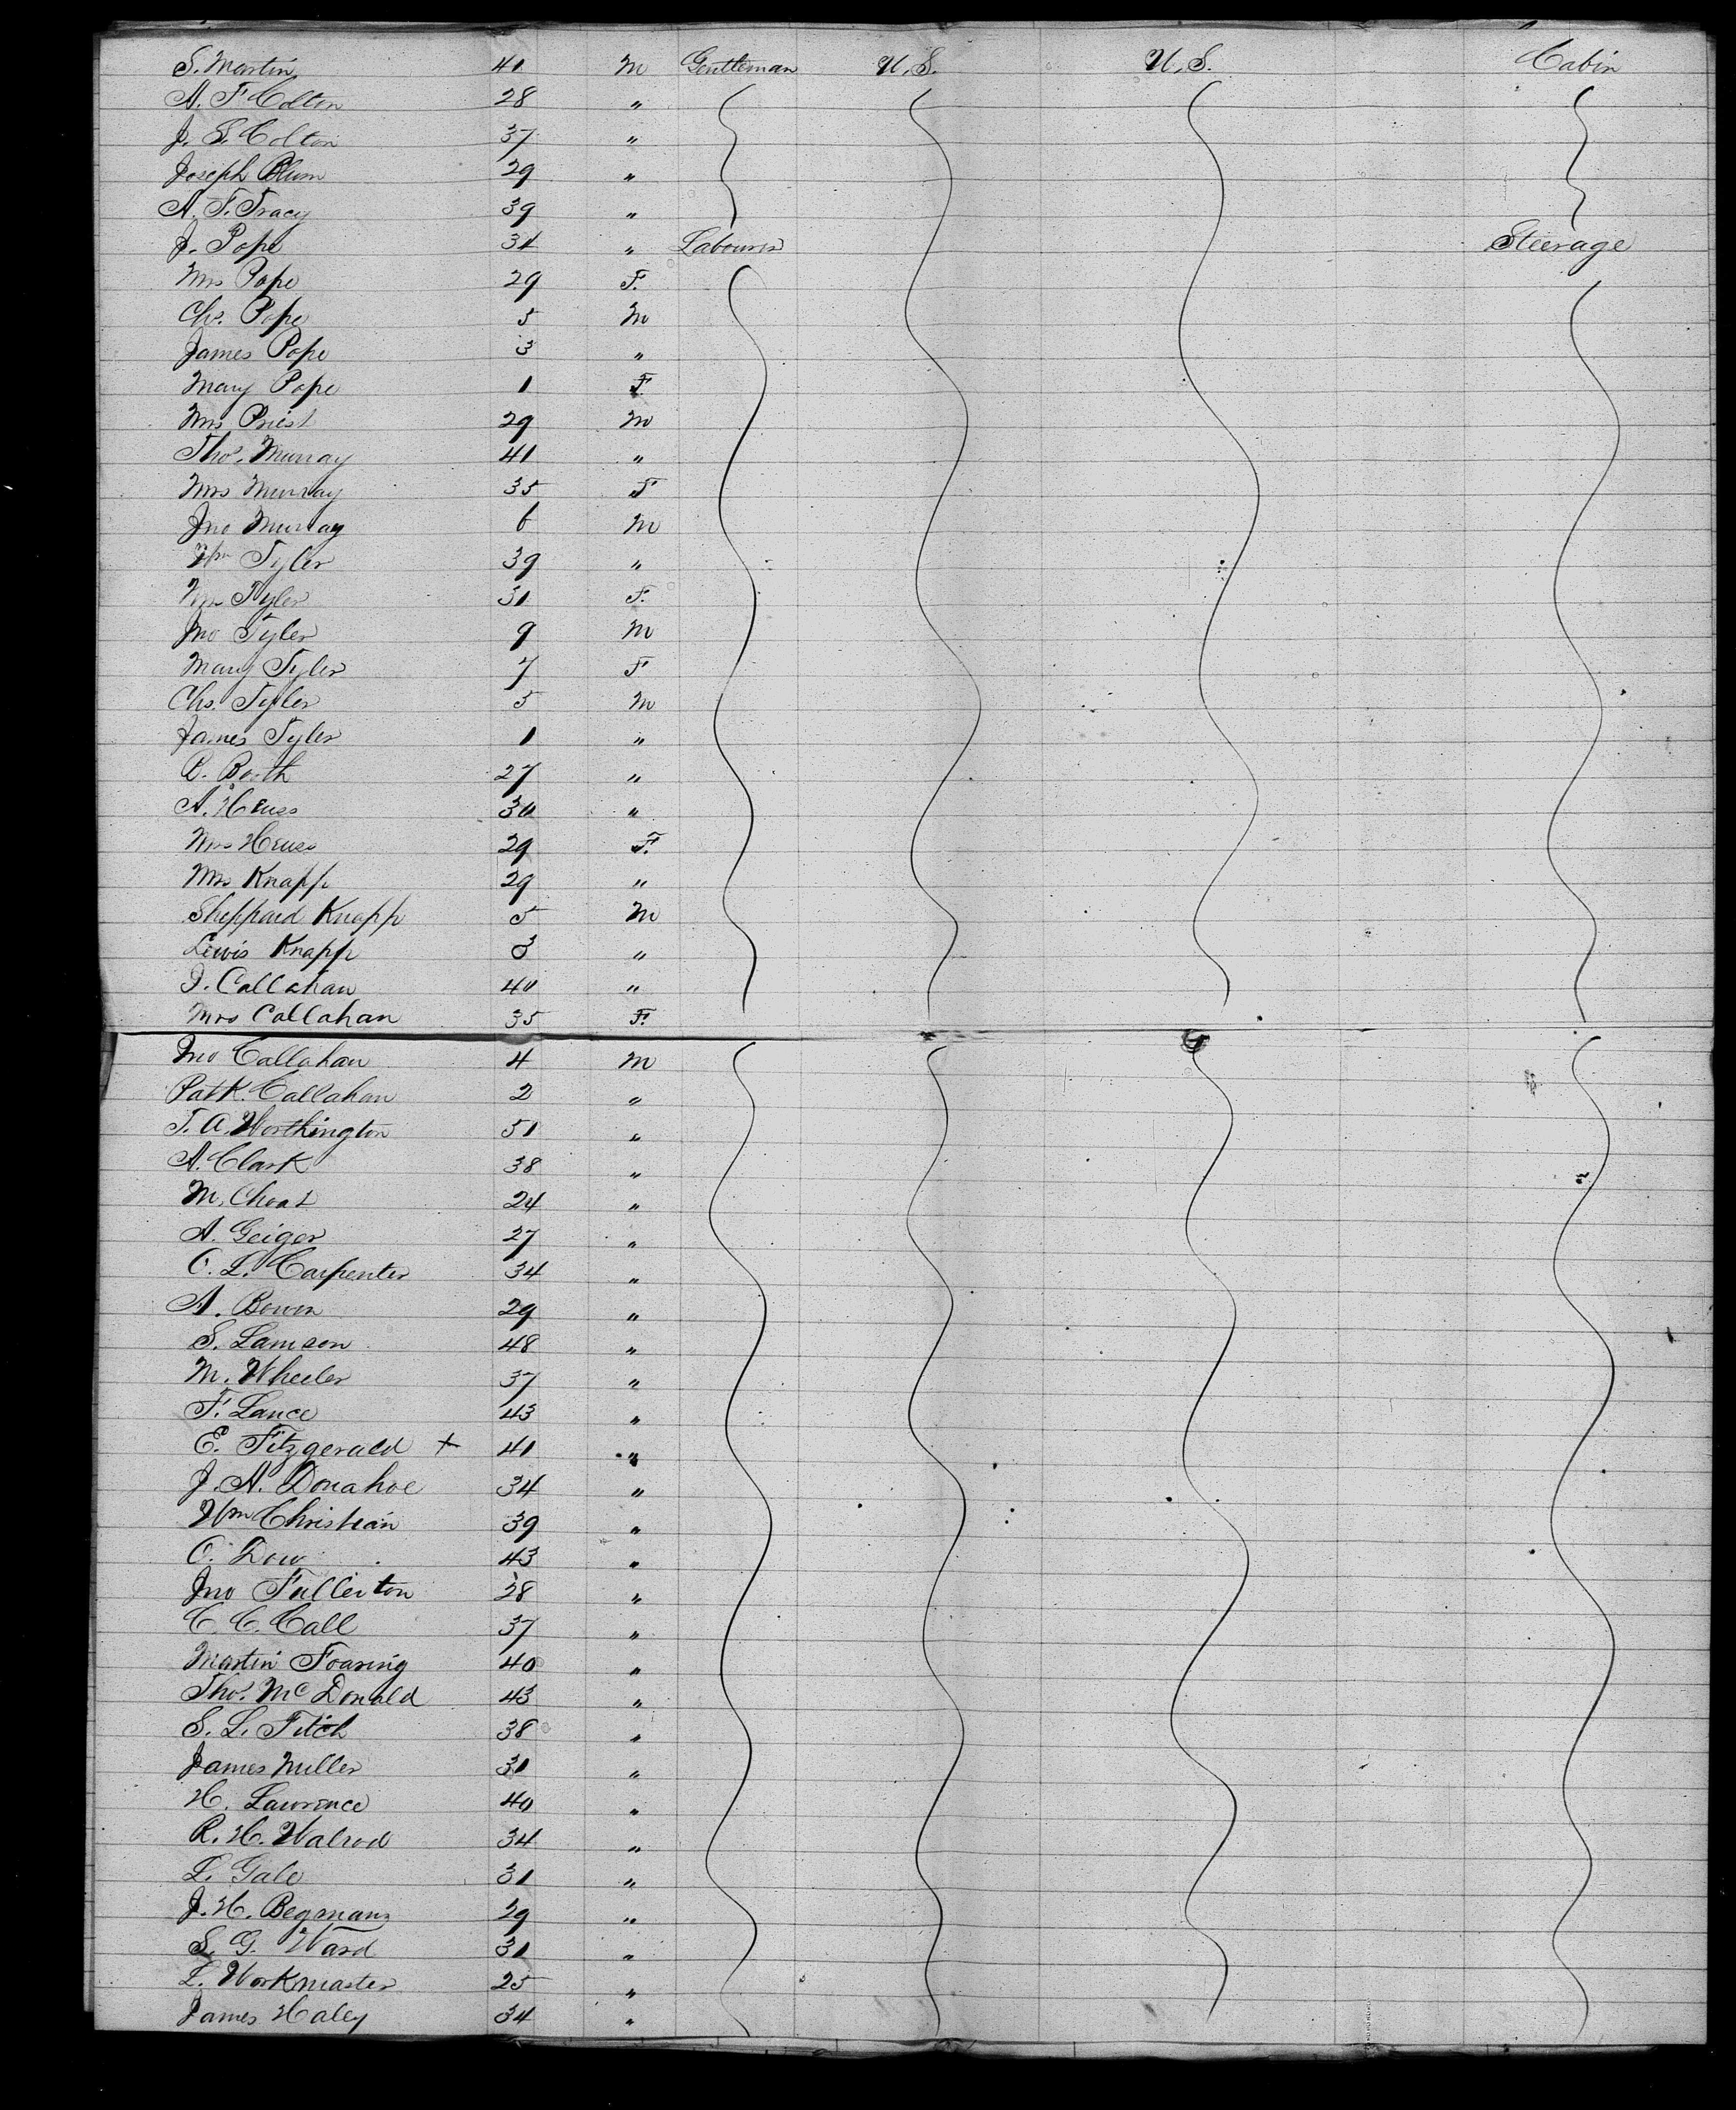 S. Martin 41 M Gentleman U.S. U.S. Cabin
A. F. Colton 28 "
J. S. Colton 37 "
Joseph Blum 29 "
A. F. Tracy 39 "
J. Pope 31 " Labourer Steerage
Mrs Pope 29 F.
Chs. Pope 5 M
James Pope 3 "
Mary Pope 1 F.
Mrs Priest 29 M
Thos. Murray 41 "
Mrs Murray 35 F
Jno Murray 6 M
Wm Tyler 39 "
Mrs Tyler 31 F.
Jno Tyler 9 M
Mary Tyler 7 F
Chs. Tyler 5 M
James Tyler 1 "
Booth 27 "
A. Heuss 30 "
Mrs Heuss 29 F.
Mrs Knapp 29 "
Sheppard Knapp 5 M
Lewis Knapp 3 "
J. Callahan 40 "
Mrs Callahan 35 F.
Jno Callahan 4 M
Patk. Callahan 2 "
T. A. Worthington 51 "
A. Clark 38 "
M. Choat 24 "
A. Geiger 27 "
O. L. Carpenter 34 "
A. Bowen 29 "
S. Lamson 48 "
M. Wheeler 37 "
F. Lance 43 "
E. Fitzgerald + 41 "
J. A. Donahoe 34 "
Wm Christian 39 "
O. Dow 43 "
Jno Fullerton 28 "
C. C. Call 37 "
Martin Foaring 40 "
Thos. McDonald 43 "
S. L. Fitch 38 "
James Miller 31 "
H. Lawrence 40 "
R. H. Walrod 34 "
L. Gale 31 "
J. H. Begman 29 "
S. G. Ward 31 "
L. Workmaster 25 "
James Haley 34 "